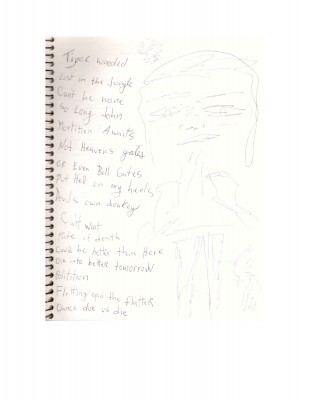 Tiger wooded
Lost in the Jungle
Can't be none
So Long John
Mortition Awaits
Not Heavens gates
OR Even Bill Gates
But Hell on my heels
own donkey
Can't wait
Fate at death
Could be better than Here
Die into better tomorrow
Petition
Flitting upon the flutter
Dance due us die